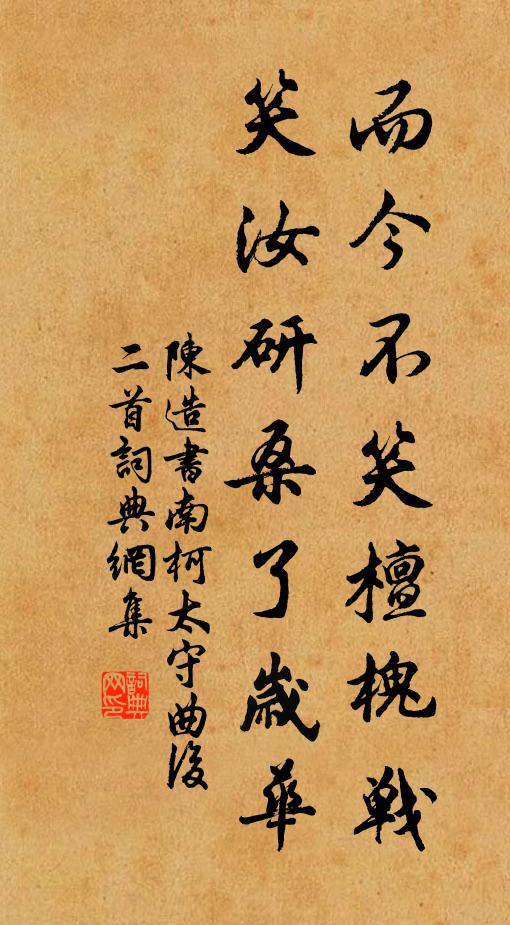 而今不笑檀槐戦
笑汝研桑了歲華
陳造書南柯太守曲後
二首詞典網集
詞典网印